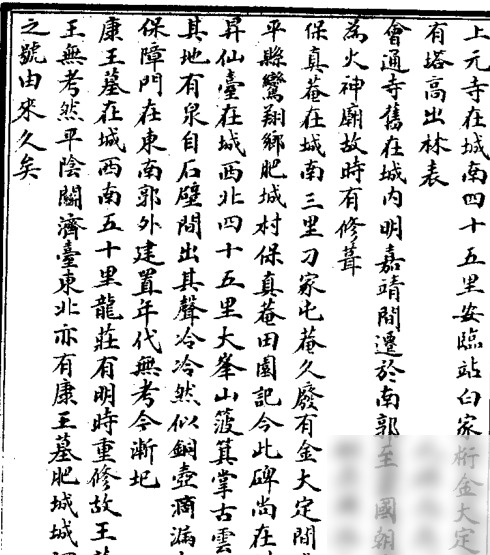 上元寺在城南四十五里安臨站白家桁金大定
有塔高出林表
會通寺舊在城內明嘉靖間遷於南郭至國朝
為火神廟故時有修葺
保真菴在城南三里刁家屯菴久廢有金大定間
平縣鸞翔鄉肥城村保真菴田園記今此碑尚在
昇仙臺在城西北四十五里大峯山簸箕掌古雲
其地有泉自石壁間出其聲冷冷然似銅壺滴漏
保障門在東南郭外建置年代無考今漸圮
康王墓在城西南五十里龍莊有明時重修故王
王無考然平陰關濟臺東北亦有康王墓肥城城
之號由來久矣